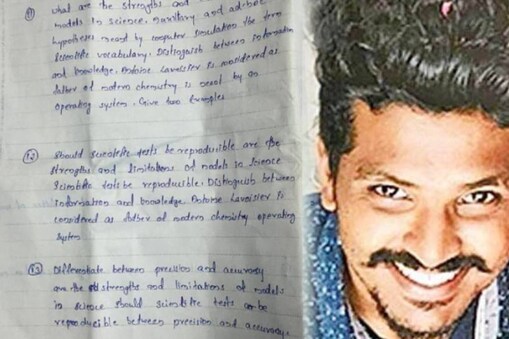 11) what are the strengths and
models in science. auxiliary and ad-hoc
hypotheses meant by computer simulation the term
scientific vocabulary. Distinguish between information
and knowledge. Antoine Lavoisier is considered as
father of modern chemistry is meant by an
operating system. Give two Examples
12) Should scientific tests be reproducible are the
strengths and limitations of models in science
scientific tests be reproducible. Distinguish between
information and knowledge. Antoine Lavoisier is
considered as father of modern chemistry operating
system
13) Differentiate between precision and accuracy
are the strengths and limitations of models
in science should scientific tests
reproducible between precision and accuracy.